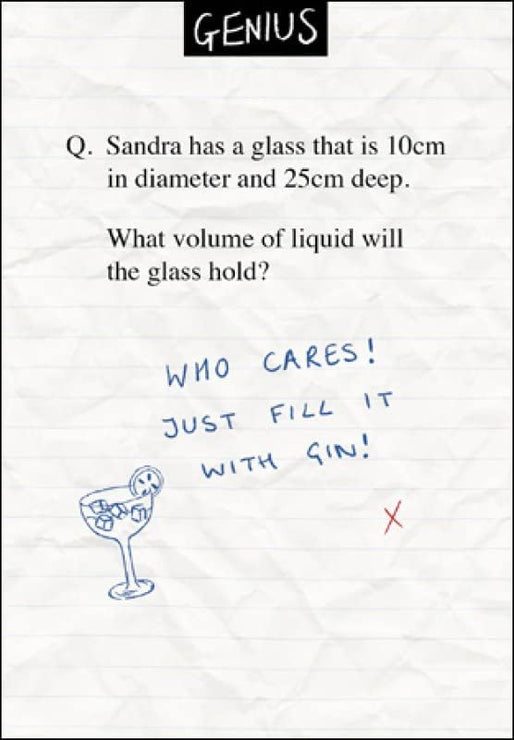 GENIUS
Q. Sandra has a glass that is 10cm
in diameter and 25cm deep.
What volume of liquid will
the glass hold?
WHO CARES!
JUST FILL IT
WITH GIN!
X